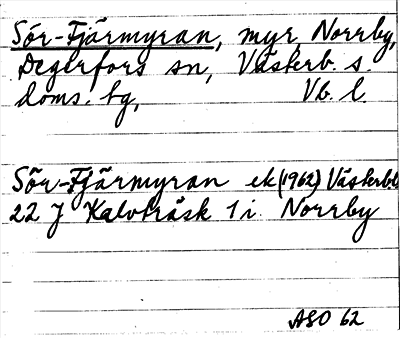 Sör-Fjärmyran, myr, Norrby,
Degerfors sn, Västerb. s.
doms. hg, Vb. l.
Sör-Fjärmyran ek (1962) Västerb l
22 J Kalvträsk 1 i Norrby
ASO 62